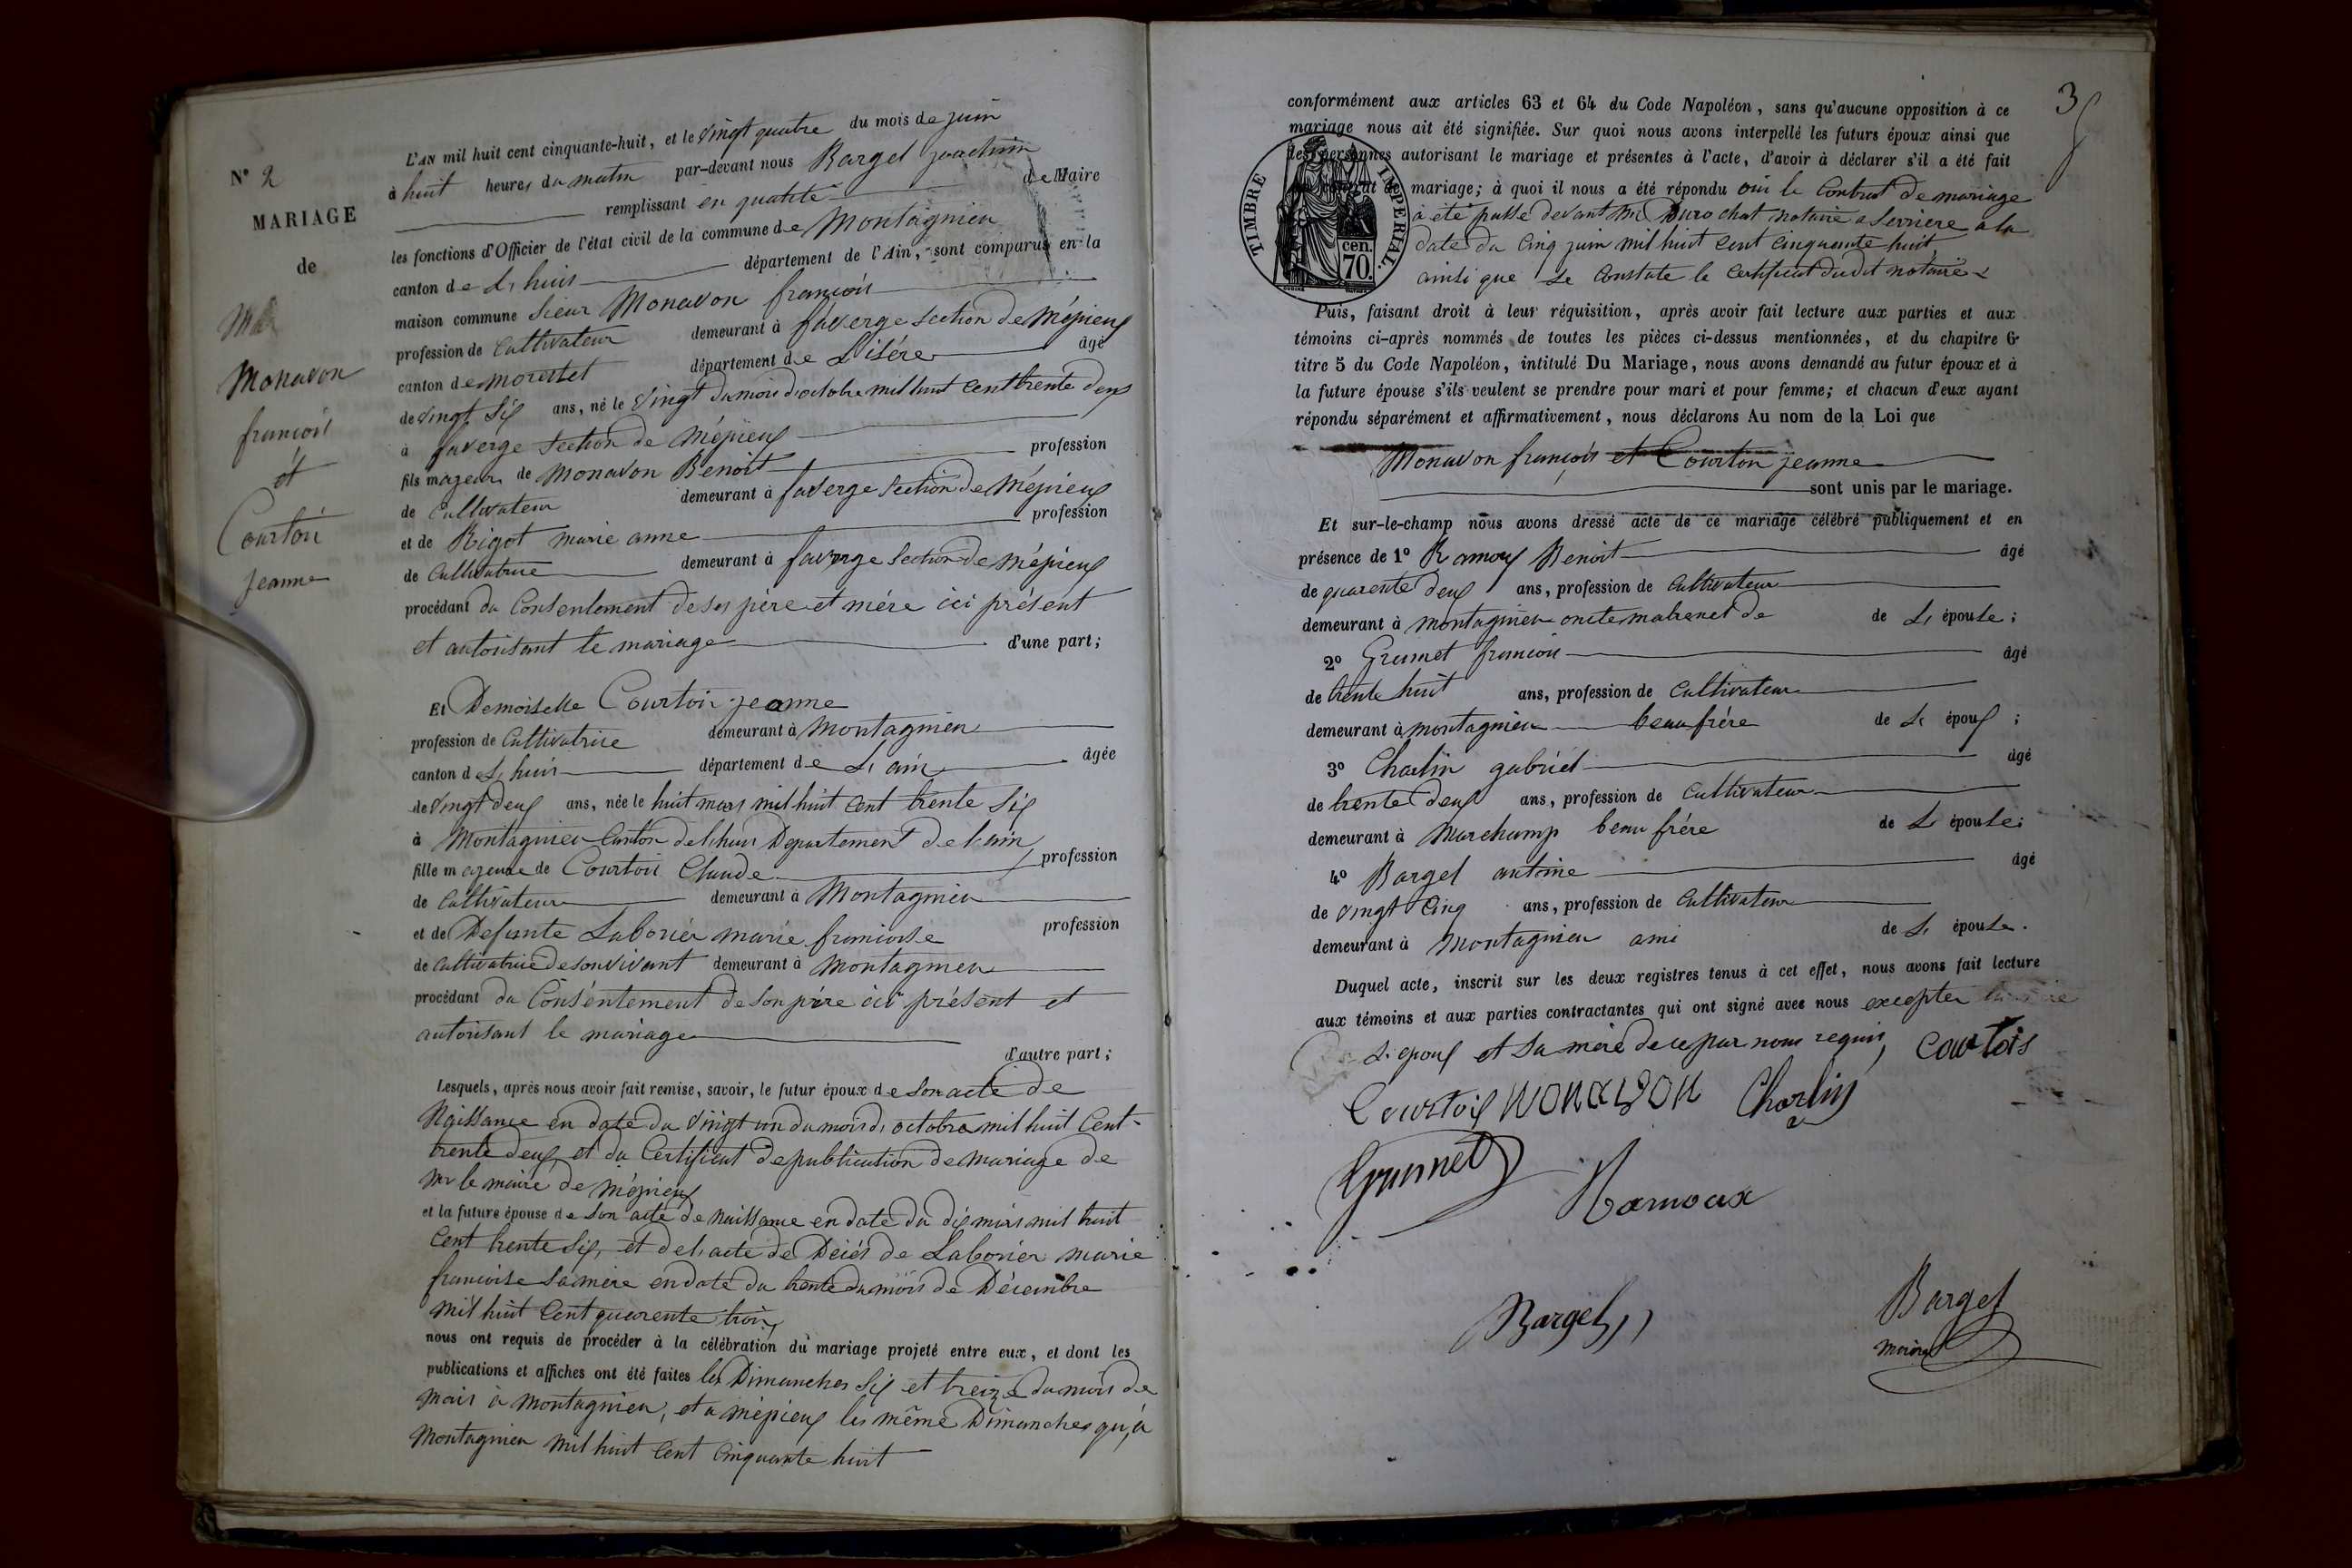 N° 2
MARIAGE
de
Monavon
françois
et
Courtois
Jeanne
L'AN mil huit cent cinquante-huit, et le vingt quatre du mois de juin
à huit heures du matin par-devant nous Barget joachim
remplissant en qualité de Maire
les fonctions d'Officier de l'état civil de la commune de Montagnieu
canton de L'huis département de l'Ain, sont comparus en la
maison commune sieur Monavon françois
profession de Cultivateur demeurant à faverge section de Mépieux
canton de morestel département de L'isére âgé
de vingt six ans, né le vingt du mois d'octobre mil huit cent trente deux
à faverge section de Mépieux
fils majeur de Monavon Benoit profession
de Cultivateur demeurant à faverge section de Mépieux
et de Rigot marie anne profession
de Cultivatrice demeurant à faverge section de Mépieux
procédant du Consentement de ses père et mère ici présent
et autorisant le mariage d'une part;
Et Demoiselle Courtois jeanne
profession de Cultivatrice demeurant à Montagnieu
canton de L'huis département de L'ain âgée
de vingt deux ans, née le huit mars mil huit cent trente six
à Montagnieu Canton de Lhuis Departement de l'ain
fille majeure de Courtois Claude profession
de Cultivateur demeurant à Montagnieu
et de Defunte Laborier marie francoise profession
de Cultivatrice de son vivant demeurant à Montagnieu
procédant du Consentement de son père ici présent et
autorisant le mariage
d'autre part;
Lesquels, après nous avoir fait remise, savoir, le futur époux de son acte de
Naissance en date du vingt un du mois d'octobre mil huit Cent
trente deux et du Certificat de publication de mariage de
Mr le maire de Mépieux
et la future épouse de son acte de naissance en date du dix mars mil huit
Cent trente six, et de l'acte de Décés de Laborier marie
francoise sa mère en date du trente du mois de Décembre
mil huit Cent quarente trois
nous ont requis de procéder à la célébration du mariage projeté entre eux, et dont les
publications et affiches ont été faites les Dimanches six et treize du mois de
mais à montagnieu, et a mépieux les même Dimanches qu'à
Montagnieu mil huit Cent Cinquante huit
3
conformément aux articles 63 et 64 du Code Napoléon, sans qu'aucune opposition à ce
mariage nous ait été signifiée. Sur quoi nous avons interpellé les futurs époux ainsi que
les personnes autorisant le mariage et présentes à l'acte, d'avoir à déclarer s'il a été fait
contrat de mariage; à quoi il nous a été répondu oui le Contrat de mariage
à été passé devant Me Durochat notaire a Serriere a la
date du Cinq juin mil huit cent cinquante huit
ainsi que le Constate le Certificat dudit notaire
TIMBRE IMPERIAL.
cen.
70.
Puis, faisant droit à leur réquisition, après avoir fait lecture aux parties et aux
témoins ci-après nommés de toutes les pièces ci-dessus mentionnées, et du chapitre 6
titre 5 du Code Napoléon, intitulé Du Mariage, nous avons demandé au futur époux et à
la future épouse s'ils veulent se prendre pour mari et pour femme; et chacun d'eux ayant
répondu séparément et affirmativement, nous déclarons Au nom de la Loi que
Monavon françois et Courtois jeanne
sont unis par le mariage.
Et sur-le-champ nous avons dressé acte de ce mariage célébré publiquement et en
présence de 1° Ramoux Benoit âgé
de quarente deux ans, profession de Cultivateur
demeurant à montagnieu oncle maternel de de L'épouse;
2° Grumet francois âgé
de trente huit ans, profession de Cultivateur
demeurant à montagnieu beau frére de L'époux;
3° Charlin gabriel âgé
de trente deux ans, profession de Cultivateur
demeurant à Marchamp beau frére de L'épouse;
4° Barget antoine âgé
de vingt Cinq ans, profession de Cultivateur
demeurant à Montagnieu ami de L'épouse.
Duquel acte, inscrit sur les deux registres tenus à cet effet, nous avons fait lecture
aux témoins et aux parties contractantes qui ont signé avec nous excepter
L'époux et sa mère de ce par nous requis, courtois
Courtois MONAVON Charlin
Grumet
Ramoux
Barget Barget
maire